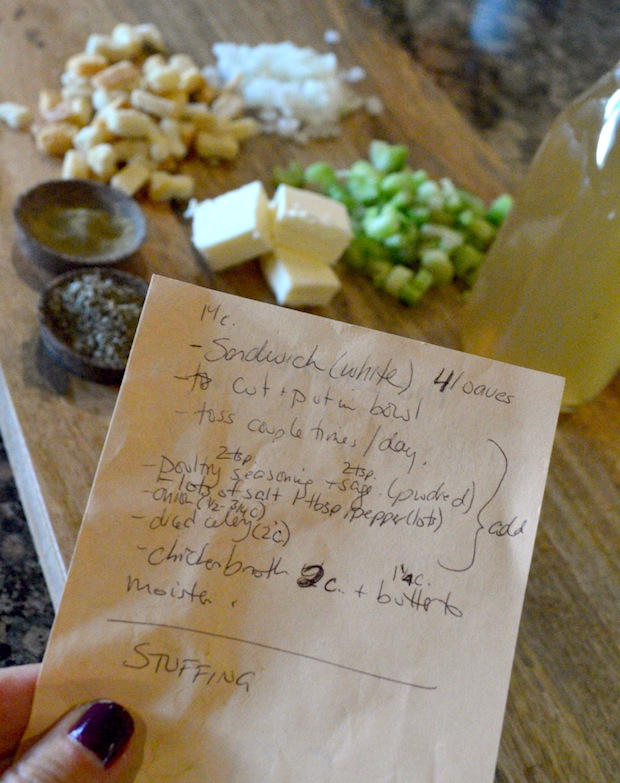 14c.
- Sandwich (white) 4 loaves
- cut + put in bowl
- toss couple times / day.
2 tsp. 2 tsp.
- poultry seasoning + sage (pwdred)
- lots of salt 1 tbsp, pepper (lots)
- onion (1/2 - 3/4 c)
- diced celery (2c) add
1 1/4 c.
- chicken broth 2 c. + butter to
moisten.
STUFFING